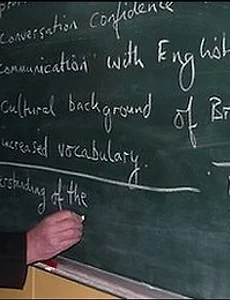 conversation confidence
communication with English
cultural background of Br
increased vocabulary.
erstanding of the